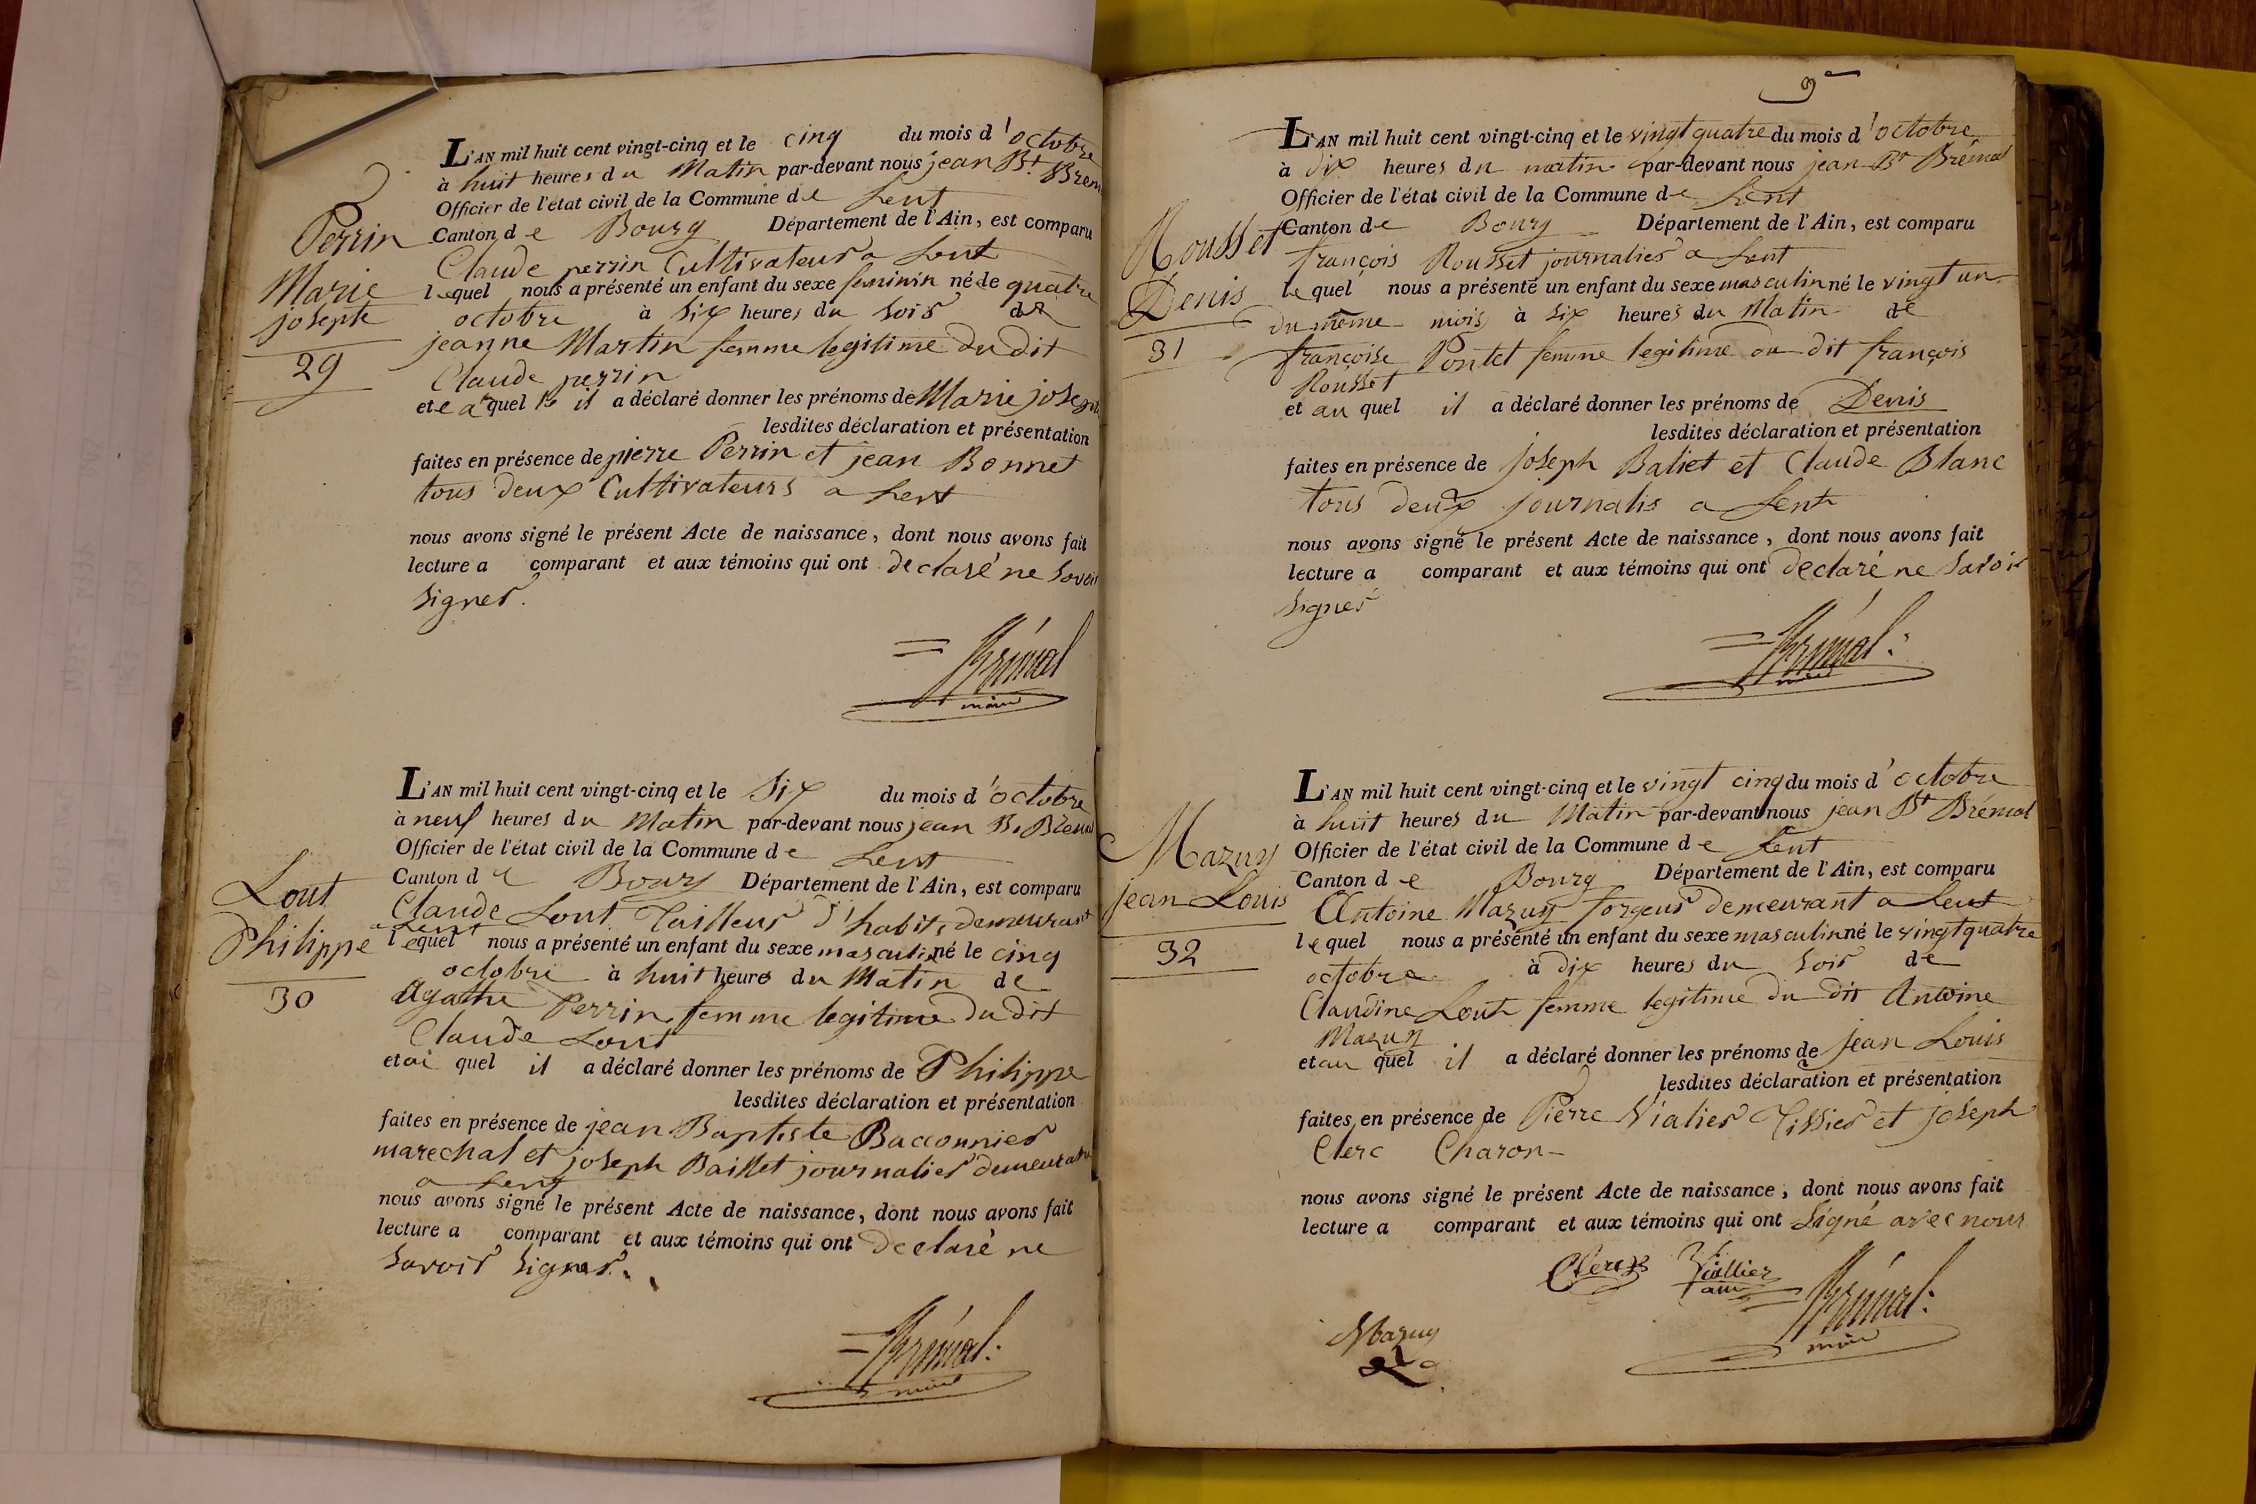 L'AN mil huit cent vingt-cinq et le cinq du mois d'octobre
à huit heures du Matin par-devant nous jean Bt. Brem
Officier de l'état civil de la Commune de Lent
Canton de Bourg Département de l'Ain, est comparu
Claude perrin Cultivateur a Lent
lequel nous a présenté un enfant du sexe feminin né de quatre
octobre à Six heures du Soir de
jeanne Martin femme legitime du dit
Claude perrin
et quel il a déclaré donner les prénoms de Marie joseph
lesdites déclaration et présentation
faites en présence de pierre Perrin et jean Bonnet
tous deux Cultivateurs a Lent
nous avons signé le présent Acte de naissance, dont nous avons fait
lecture a comparant et aux témoins qui ont declaré ne Savoir
Signer.
Brémal
maire
Perrin
Marie
josephe
29
L'AN mil huit cent vingt-cinq et le Six du mois d'octobre
à neuf heures du Matin par-devant nous jean B. Brémal
Officier de l'état civil de la Commune de Lent
Canton de Bourg Département de l'Ain, est comparu
Claude Lout Tailleur d'habits demeurant
a Lent
lequel nous a présenté un enfant du sexe masculin né le cinq
octobre à huit heures du Matin de
Agathe Perrin femme legitime du dit
Claude Lout
et au quel il a déclaré donner les prénoms de Philippe
lesdites déclaration et présentation
faites en présence de jean Baptiste Baconnier
marechal et joseph Baillet journalier demeurant
a Lent
nous avons signé le présent Acte de naissance, dont nous avons fait
lecture a comparant et aux témoins qui ont declaré ne
Savoir Signer.
Brémal.
maire
Lout
Philippe
30
9e
L'AN mil huit cent vingt-cinq et le vingt quatre du mois d'octobre
à dix heures du matin par-devant nous jean Bt Brémal
Officier de l'état civil de la Commune de Lent
Canton de Bourg Département de l'Ain, est comparu
françois Rousset journalier a Lent
le quel nous a présenté un enfant du sexe masculin né le vingt un
du même mois à Six heures du Matin de
françoise Pontet femme legitime du dit françois
Rousset
et au quel il a déclaré donner les prénoms de Denis
lesdites déclaration et présentation
faites en présence de joseph Baliet et Claude Blanc
tous deux journalis a Lent
nous avons signé le présent Acte de naissance, dont nous avons fait
lecture a comparant et aux témoins qui ont declaré ne Savoir
Signer
Brémal.
maire
Rousset
Denis
31
L'AN mil huit cent vingt-cinq et le vingt cinq du mois d'octobre
à huit heures du Matin par-devant nous jean Bt Brémal
Officier de l'état civil de la Commune de Lent
Canton de Bourg Département de l'Ain, est comparu
Antoine Mazuy forgeur demeurant a Lent
lequel nous a présenté un enfant du sexe masculin né le vingt quatre
octobre à dix heures du Soir de
Claudine Lout femme legitime du dit Antoine
Mazuy
et au quel il a déclaré donner les prénoms de jean Louis
lesdites déclaration et présentation
faites en présence de Pierre Vialier Tissier et joseph
Clerc Charon
nous avons signé le présent Acte de naissance, dont nous avons fait
lecture a comparant et aux témoins qui ont Signé avec nous
Clerc Viallier
Brémal.
maire
Mazuy
Mazuy
jean Louis
32